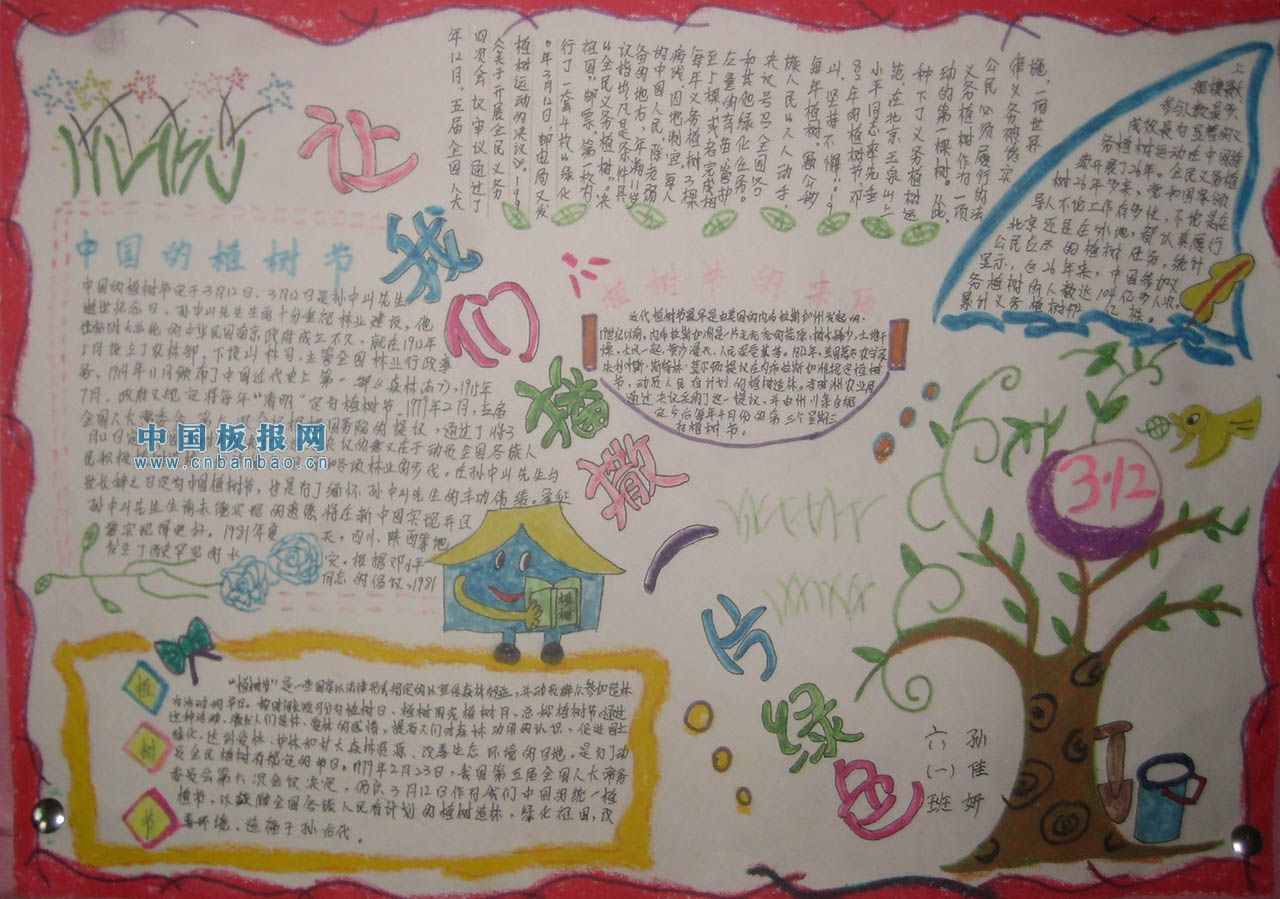 让我们播撒片绿色
中国的植树节
中国的植树节定于3月12日。3月12日是孙中山先生
逝世纪念日。孙中山先生生前十分重视林业建设。他
任临时大总统的中华民国南京政府成立不久，就在1912年
5月设立了农林部，下设山林司，主管全国林业行政事
务。1914年11月颁布了中国近代史上第一部《森林法》，1915年
7月，政府又规定将每年"清明"定为植树节。1979年2月，五届
全国人大常委会
国务院的提议，通过了将3
议的意义在于动员全国各族人
民积极
各项林业的步伐。在孙中山先生与
世长辞之日定为中国植树节，也是为了缅怀孙中山先生的丰功伟绩。象征
孙中山先生生前未能实现的遗愿将在新中国实现并且
要实现得更好。1981年夏天，四川、陕西等地
发生了历史罕见的水灾。根据邓小平
同志的倡议，1981
年12月，五届全国人大
四次会议审议通过了
《关于开展全民义务
植树运动的决议》。199
0年3月12日，邮电局又发
行了一套4枚"绿化
祖国"邮票，第一枚为
"全民义务植树"。决
议指出，凡是条件具
备的地方，年满11岁
的中国人民，除老弱
病残，因地制宜，每人
每年义务植树3棵
至5棵，或者完成相
左量的育苗、管护
和其他绿化任务。
决议号召全国各
族人民"人人动手，
每年植树，愚公移
山，坚持不懈"。19
82年的植树节，邓
小平同志率先垂
范，在北京玉泉山上
种下了义务植树运
动的第一棵树。从此，
义务植树作为一项
公民必须履行的法
律义务被落实
施，一項世界
上
规模最大
参与人数最多、
成效最为显著的义
务植树运动在中国持
续开展了26年。全民义务植
树26年多来，党和国家领
导人不论工作有多忙，不论是在
北京还是在外地，都认真履行
公民应尽的植树任务。统计
显示，自26年来，中国参加义
务植树的人数达104亿多人次，
累计义务植树492亿株。
植树节的来历
近代植树节最早是由美国的内布拉斯加州发起的。
19世纪以前，内布拉斯加洲是一片光秃秃的荒原，树木稀少，土地干
燥，大风一起，黄沙漫天，人民深受其苦。1872年，美国著名农学家
朱利叶斯·斯特林·莫尔顿提议在内布拉斯加洲规定植树
节，动员人民有计划的植树造林。当时州农业局
通过决议采纳了这一提议，并由州长亲自规
定今后每年4月份的第三个星期三
为植树节。
植树
3·12
植
树
节
"植树节"是一些国家以法律形式规定的以宣传森林效益，并动员群众参加造林
为活动内容的节日。按时间长短可分为植树日、植树周或植树月，总称植树节。通过
这种活动，激发人们爱林、造林的感情，提高人们对森林功用的认识，促进国土
绿化，达到爱林、护林和扩大森林资源、改善生态环境的目地。是为了动
员全民植树而规定的节日。1979年2月23日，我国第五届全国人大常务
委员会第六次会议决定，仍以3月12日作为我们中国的统一植
树节，以鼓励全国各族人民有计划的植树造林，绿化祖国，改
善环境，造福子孙后代。
六（一）班
孙佳妍
中国板报网
www.cnbanbao.cn